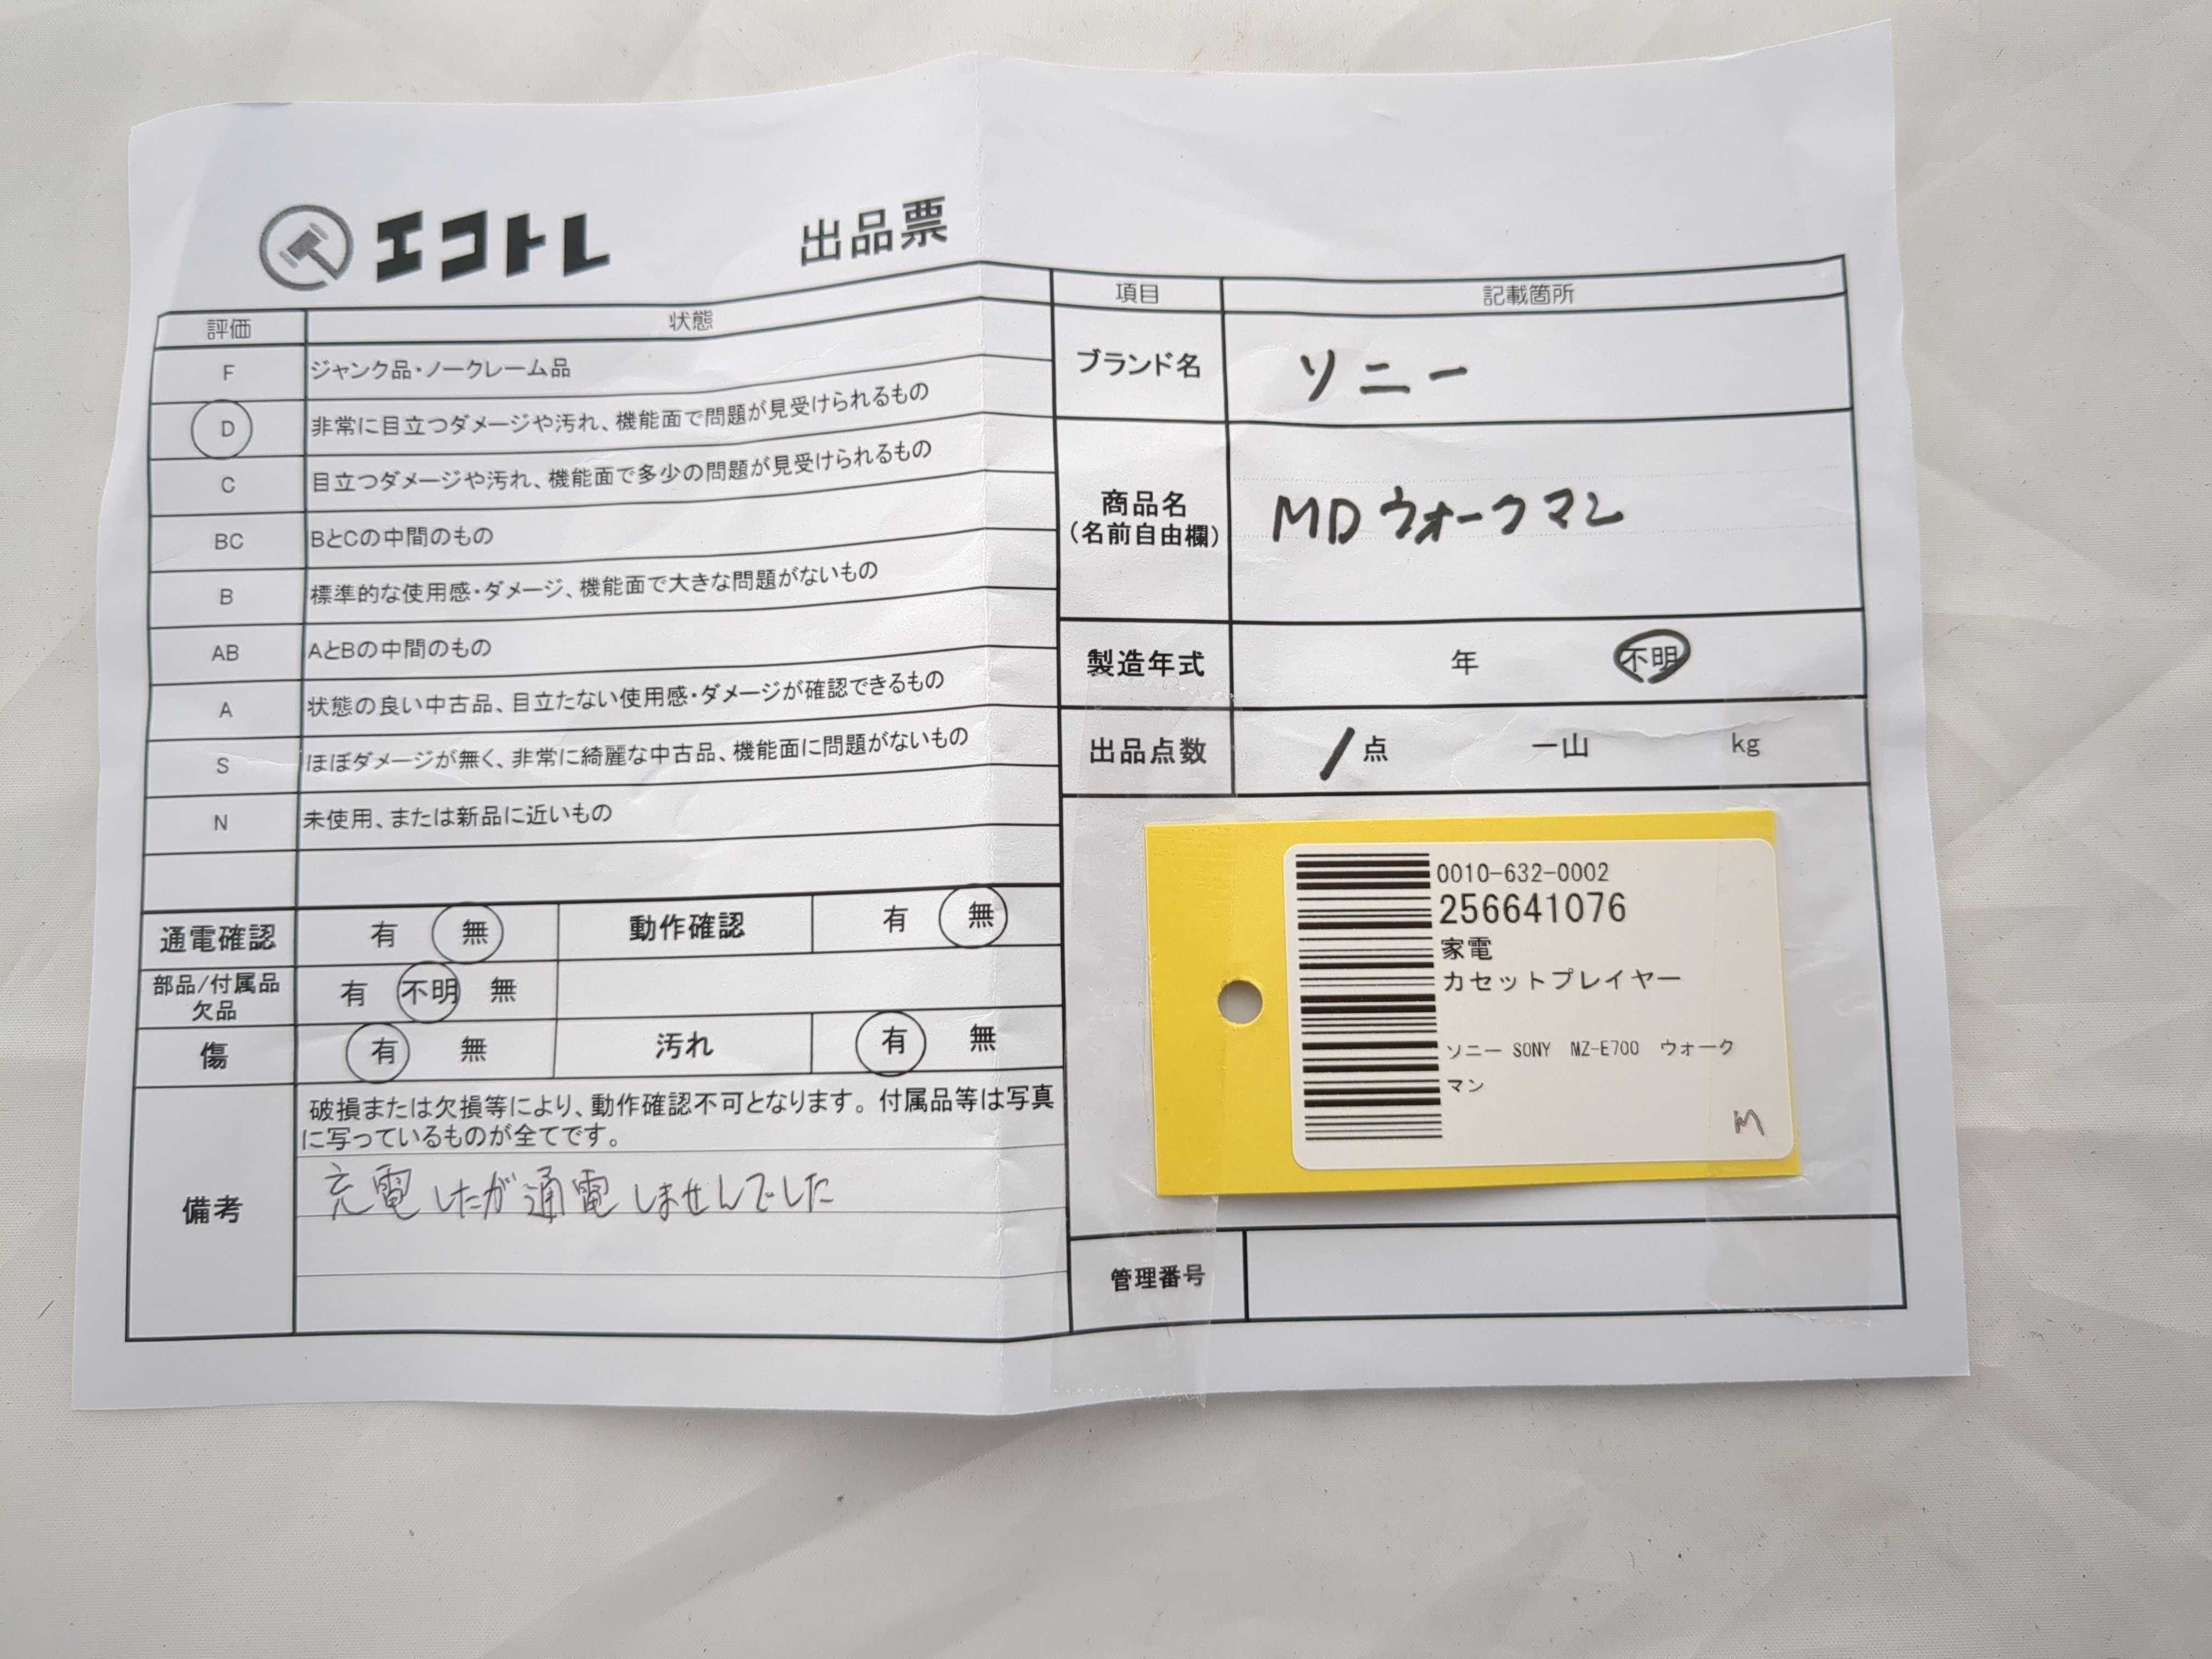 エコトレ 出品票
評価 状態
F ジャンク品・ノークレーム品
D 非常に目立つダメージや汚れ、機能面で問題が見受けられるもの
C 目立つダメージや汚れ、機能面で多少の問題が見受けられるもの
BC BとCの中間のもの
B 標準的な使用感・ダメージ、機能面で大きな問題がないもの
AB AとBの中間のもの
A 状態の良い中古品、目立たない使用感・ダメージが確認できるもの
S ほぼダメージが無く、非常に綺麗な中古品、機能面に問題がないもの
N 未使用、または新品に近いもの
通電確認 有 無 動作確認 有 無
部品/付属品
欠品
有 不明 無
傷 有 無 汚れ 有 無
備考
破損または欠損等により、動作確認不可となります。付属品等は写真
に写っているものが全てです。
充電したが通電しませんでした
項目 記載箇所
ブランド名 ソニー
商品名
(名前自由欄)
MDウォークマン
製造年式 年 不明
出品点数 1点 一山 kg
0010-632-0002
256641076
家電
カセットプレイヤー
ソニー SONY MZ-E700 ウォーク
マン
M
管理番号